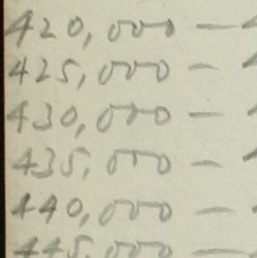 420,000 —
425,000 —
430,000 —
435,000 —
440,000 —
445,000 —